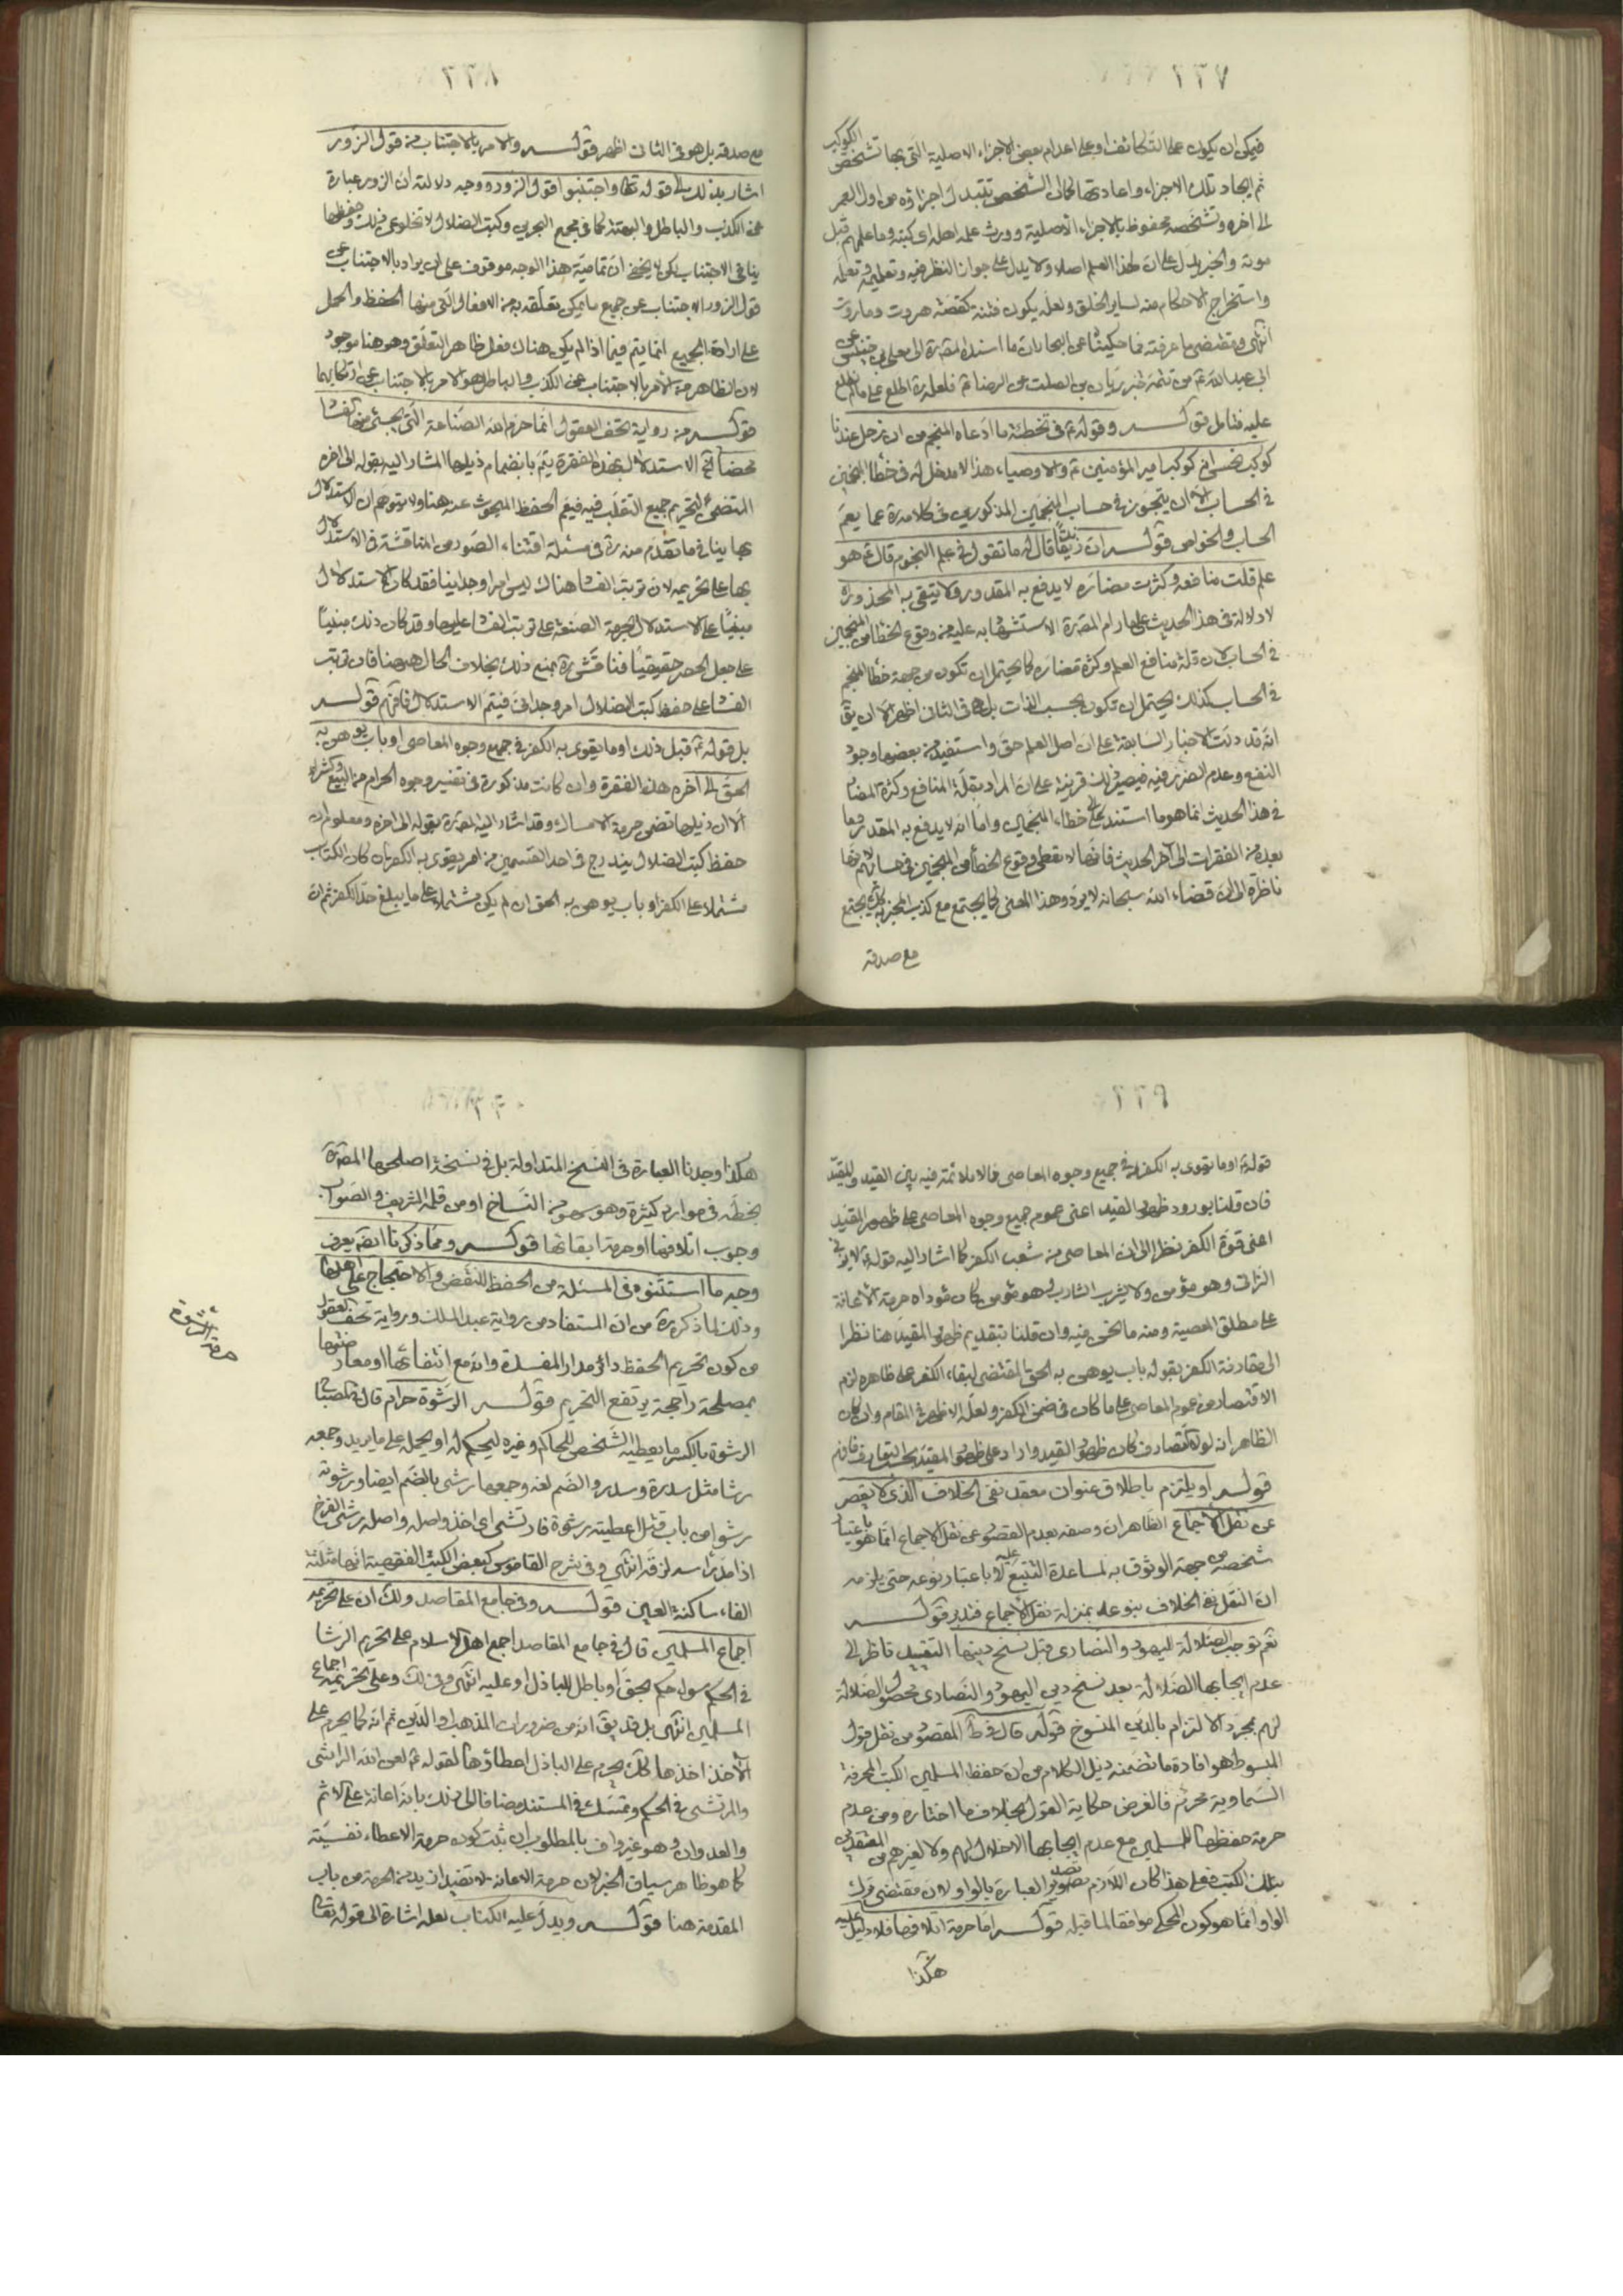 ٢٢٧
فيمكن ان يكون على التكاثف او على اعدام بعض الاجزاء الاصلية التى بها تشخص الكوكب
ثم ايجاد تلك الاجزاء واعادتها كما ان الشخص تتبدل اجزاؤه من اول العمر
الى اخره وتشخصه محفوظ بالاجزاء الاصلية وورث علمه اهله اى كتبه وما علمهم قبل
موته والخبر يدل على ان لهذا العلم اصلا ولا يدل على جواز النظر فيه وتعليمه وتعلمه
واستخراج الاحكام منه لساير الخلق ولعله يكون فتنة كقصة هروت وماروت
انتهى ومقتضى ما عرفته مما حكيناه عن البحار ان ما اسنده المصره الى معلى بن خنيس عن
ابى عبد الله ع من تتمة خبر ريان بن الصلت عن الرضا ع فلعله ره اطلع على ما لم نطلع
عليه فتامل قوله وقوله ع فى تخطئة ما ادعاه المنجم من ان زحل عندنا
كوكب نحس انه كوكب امير المؤمنين ع والاوصياء هذا لا مدخل له فى خطأ المنجمين
فى الحساب الا ان يتجوز فى حساب المنجمين المذكورين فى كلامه ره عما يعم
الحساب والخواص قوله ان زنديقا قال له ما تقول فى علم النجوم قال ع هو
علم قلت منافعه وكثرت مضاره لا يدفع به المقدور ولا يتقى به المحذور اه
لا دلالة فى هذا الحديث على ما رام المصره الاستشهاد به عليه من وقوع الخطأ من المنجمين
فى الحساب لان قلة منافع العلم وكثرة مضاره كما يحتمل ان تكون من جهة خطأ المنجم
فى الحساب كذلك يحتمل ان تكون بحسب الذات بل هى فى الثانى اظهر الا ان يق
انه قد دلت الاخبار السابقة على ان اصل العلم حق واستفيد من بعضها وجود
النفع وعدم الضرر فيه فيصير ذلك قرينة على ان المراد بقلة المنافع وكثرة المضار
فى هذا الحديث انما هو ما استند الى خطاء المنجمين واما انه لا يدفع به المقدور وما
بعده من الفقرات الى اخر الحديث فانها لا تعطى وقوع الخطأ من المنجمين فى حسابهم لانها
ناظرة الى ان قضاء الله سبحانه لا يرد وهذا المعنى كما يجتمع مع كذب المخبر به كذلك يجتمع
مع صدقه
٢٢٨
مع صدقه بل هو فى الثانى اظهر قوله والامر بالاجتناب من قول الزور
اشار بذلك الى قوله تعا واجتنبوا قول الزور ووجه دلالته ان الزور عبارة
عن الكذب والباطل والبهتة كما فى مجمع البحرين وكتب الضلال لا تخلو عن ذلك وحفظها
ينافى الاجتناب لكن لا يخفى ان تمامية هذا الوجه موقوف على ان يراد بالاجتناب عن
قول الزور الاجتناب عن جميع ما يمكن تعلقه به من الافعال التى منها الحفظ والحمل
على ارادة الجميع انما يتم فيما اذا لم يكن هناك فعل ظاهر التعلق وهو هنا موجود
لان الظاهر من الامر بالاجتناب عن الكذب والباطل هو الامر بالاجتناب عن ارتكابهما
قوله من رواية تحف العقول انما حرم الله الصناعة التى يجئ منها الفسا
محضا الخ الاستدلال بهذه الفقرة يتم بانضمام ذيلها المشار اليه بقوله الى اخره
المتضمن لتحريم جميع التقلب فيه فيعم الحفظ المبحوث عنه هنا ولا يتوهم ان الاستدلال
بها ينافى ما تقدم منه ره فى مسئلة اقتناء الصور من المناقشة فى الاستدلال
بها على تحريمه لان ترتب الفسا هناك ليس امرا وجدانيا فقد كان الاستدلال
مبنيا على الاستدلال بحرمة الصنعة على ترتب الفسا عليها وقد كان ذلك مبنيا
على جعل الحصر حقيقيا فناقش ره بمنع ذلك بخلاف الحال هيهنا فان ترتب
الفسا على حفظ كتب الضلال امر وجدانى فيتم الاستدلال فافهم قوله
بل قوله ع قبل ذلك او ما يقوى به الكفر فى جميع وجوه المعاصى او باب يوهن به
الحق الى اخره هذه الفقرة وان كانت مذكورة فى تفسير وجوه الحرام من البيع وكشراء
الا ان ذيلها تضمن حرمة الامساك وقد اشار اليه المصره بقوله الى اخره ومعلوم ان
حفظ كتب الضلال يندرج فى احد القسمين من امر يقوى به الكفر ان كان الكتاب
مشتملا على الكفر او باب يوهن به الحق ان لم يكن مشتملا على ما يبلغ حد الكفر ثم ان
٢٢٩
قوله ع او ما يقوى به الكفر فى جميع وجوه المعاصى فالا ملائمة فيه بين القيد والمقيد
فان قلنا بورود ظهور القيد اعنى عموم جميع وجوه المعاصى على ظهور المقيد
اعنى قوة الكفر نظرا الى ان المعاصى من شعب الكفر كما اشار اليه قوله ع لا يزنى
الزانى وهو مؤمن ولا يشرب الشارب وهو مؤمن كان مؤداه حرمة الاعانة
على مطلق المعصية ومنه ما نحن فيه وان قلنا بتقديم ظهور المقيد هنا نظرا
الى مقارنة الكفر بقوله باب يوهن به الحق المقتضى لبقاء الكفر على ظاهره لزم
الاقتصار من عموم المعاصى على ما كان فى ضمن الكفر ولعله الاظهر فى المقام وان كان
الظاهر انه لولا تصادف كان ظهور القيد واردا على ظهور المقيد بحسب التعارف فافهم
قوله او يلتزم باطلاق عنوان معقد نفى الخلاف الذى لا يقصر
عن نقل الاجماع الظاهر ان وصفه بعدم القصور عن نقل الاجماع انما هو باعتبا
شخصه من جهة الوثوق به لمساعدة التتبع عليه لا باعتبار نوعه حتى يلزمه
ان النقل نفى الخلاف بنوعه بمنزلة نقل الاجماع فتدبر قوله
نعم توجب الضلالة لليهود والنصارى قبل نسخ دينها التقييد ناظر الى
عدم ايجابها الضلالة بعد نسخ دين اليهود والنصارى لحصول الضلالة
لهم بمجرد الالتزام بالدين المنسوخ قوله قال فى ط المقصود من نقل قول
المبسوط هو افادة ما تضمنه ذيل الكلام من ان حفظ المسلمين الكتب المحرفة
السماوية محرم فالغرض حكاية القول بخلاف ما اختاره ومن عدم
حرمة حفظها للمسلمين مع عدم ايجابها الاخلال لهم ولا لغيرهم من المعتقدين
بتلك الكتب فعلى هذا كان اللازم تصدير العبارة بالواو لان مقتضى ترك
الواو انما هو كون المحكى موافقا لما قبله قوله اما حرمة اتلافها فلا دليل عليه
هكذا
٢٣٠
هكذا وجدنا العبارة فى النسخ المتداولة بل فى نسخة اصلحها المصره
بخطه فى موارد كثيرة وهو سهو من النساخ او من قلمه الشريف والصواب
وجوب اتلافها او حرمة ابقائها قوله ومما ذكرنا ايضا يعرف
وجه ما استثنوه فى المسئلة من الحفظ للنقض والاحتجاج على اهلها
وذلك لما ذكره ره من ان المستفاد من رواية عبد الملك ورواية تحف العقول
من كون تحريم الحفظ دائر مدار المفسدة وانه مع انتفائها او معارضتها
بمصلحة راجحة يرتفع التحريم قوله الرشوة حرام قال فى المصباح
الرشوة بالكسر ما يعطيه الشخص للحاكم وغيره ليحكم له او يحمله على ما يريد وجمعه
رشا مثل سدرة وسدر والضم لغة وجمعها رشى بالضم ايضا ورشوته
رشوا من باب قتل اعطيته رشوة فارتشى اى اخذ واصله واصله رشى الفرخ
اذا مد راسه لزقه انتهى وفى شرح القاموس كبعض الكتب الفقهية انها مثلثة
الفاء ساكنة العين قوله وفى جامع المقاصد ولك ان على تحريمه
اجماع المسلمين قال فى جامع المقاصد اجمع اهل الاسلام على تحريم الرشا
فى الحكم سواء حكم بحق او باطل للباذل او عليه انتهى وفى لك وعلى تحريمه اجماع
المسلمين انتهى بل قد يق انه من ضروريات المذهب او الدين ثم انه كما يحرم على
الاخذ اخذها كك يحرم على الباذل اعطاؤها لقوله ع لعن الله الراشى
والمرتشى فى الحكم وتمسك فى المستند مضافا الى ذلك بانه اعانة على الاثم
والعدوان وهو غير واف بالمطلوب ان ثبت كون حرمة الاعطاء نفسية
كما هو ظاهر سياق الخبر لان حرمة الاعانة لا تفيد ازيد من الحرمة من باب
المقدمة هنا قوله ويدل عليه الكتاب لعله اشارة الى قوله تعا
حرمة الرشوة